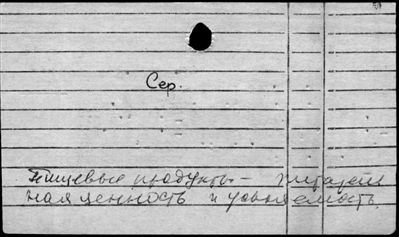 Сер.
Пищевые продукты – питатель
ная ценность и усвояемость.